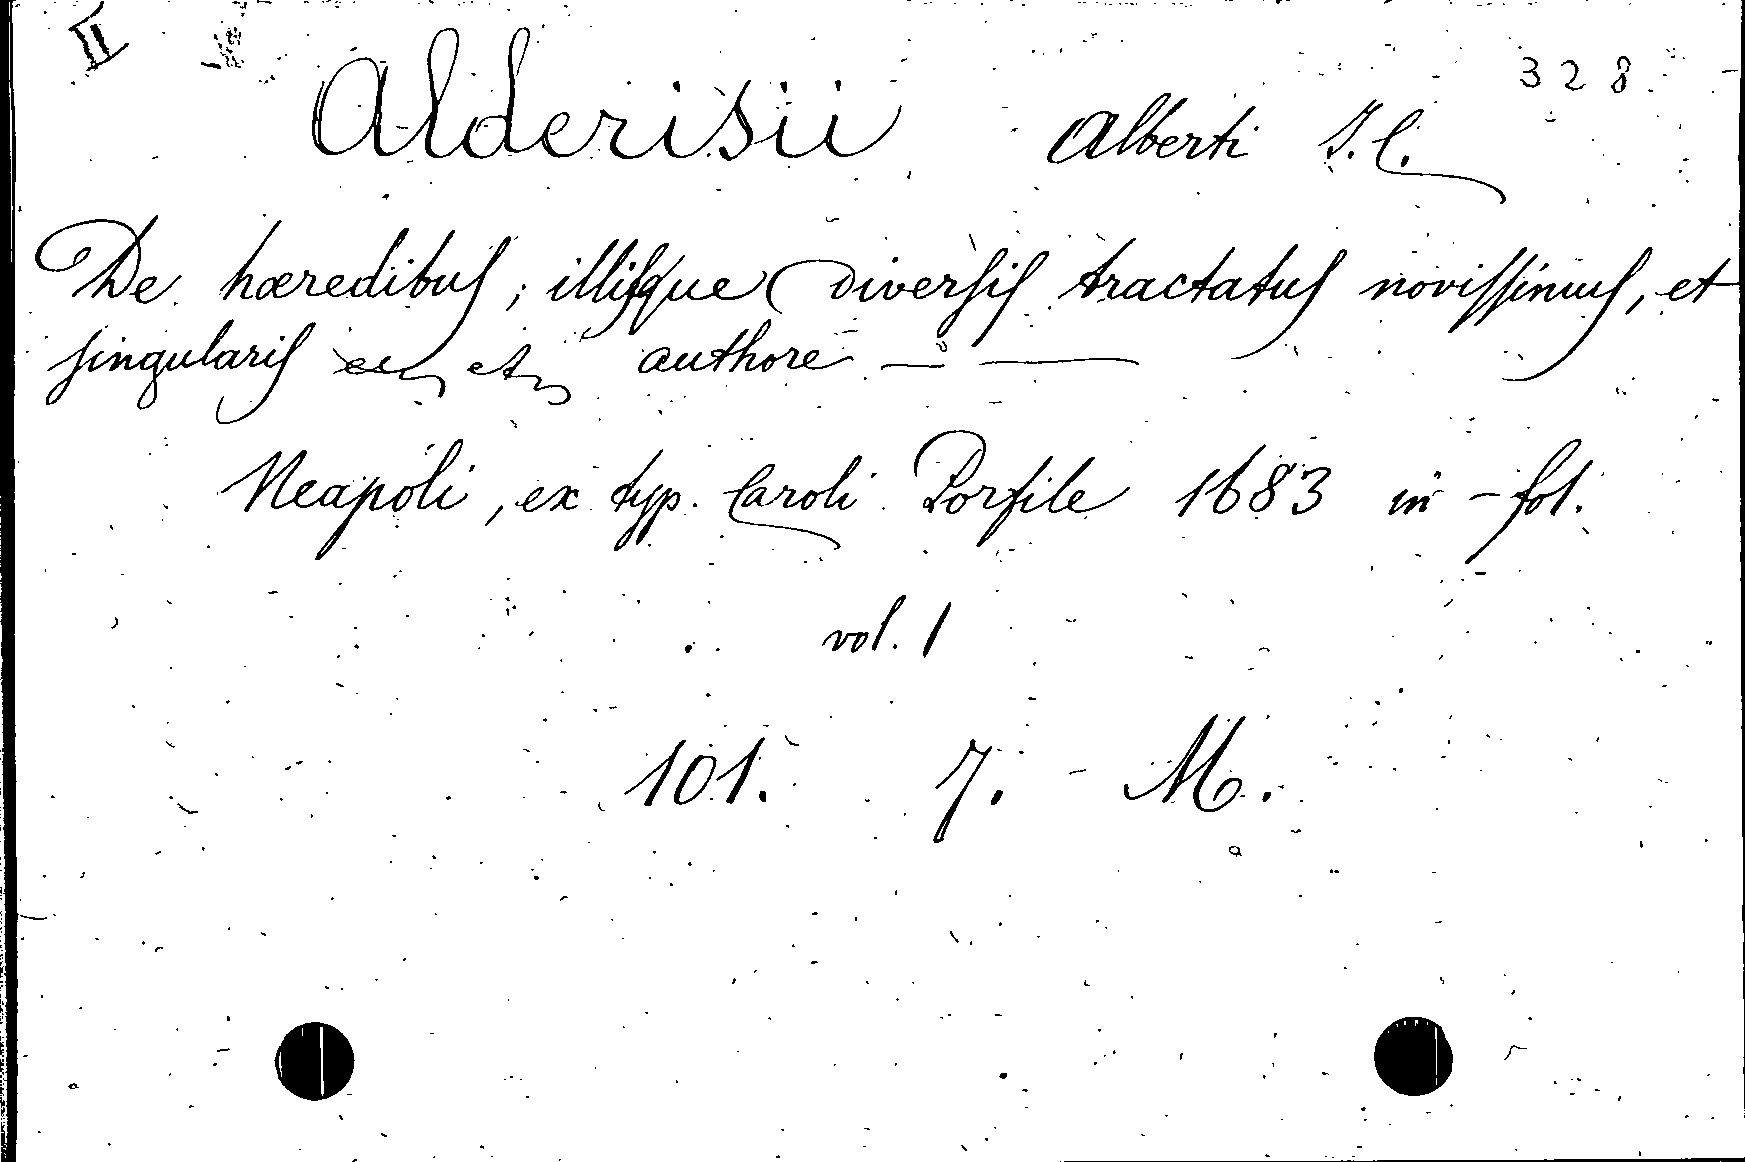 II
328
Alderisii Alberti J. C.
De hæredibus; illisque diversis tractatus novissimus, et
singularis authore — —
Neapoli, ex typ. Caroli Porfile 1683 in-fol.
vol. 1
101. 7. M.